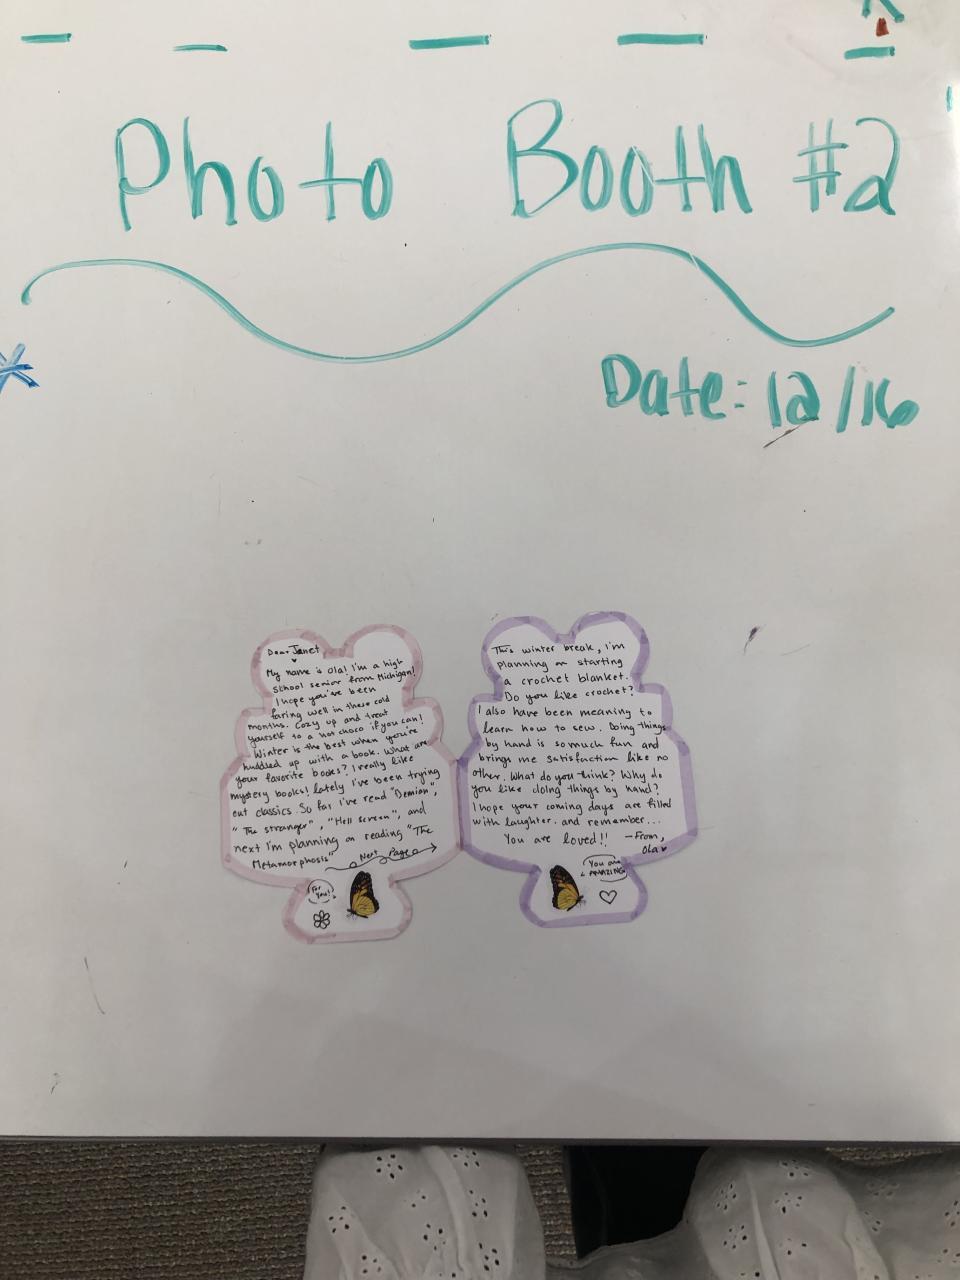 Photo Booth #2
Date: 12/16
Dear Janet
My name is Ola! I'm a high
school senior from Michigan!
I hope you've been
faring well in these cold
months. Cozy up and treat
yourself to a hot choco if you can!
Winter is the best when you're
huddled up with a book. What are
your favorite books? I really like
mystery books! Lately I've been trying
out classics. So far I've read "Demian",
"The stranger", "Hell screen", and
next I'm planning on reading "The
Metamorphosis"
Next Page
For
You!
This winter break, I'm
planning on starting
a crochet blanket.
Do you like crochet?
I also have been meaning to
learn how to sew. Doing things
by hand is so much fun and
brings me satisfaction like no
other. What do you think? Why do
you like doing things by hand?
I hope your coming days are filled
with laughter. and remember...
You are loved!! -From,
Ola
You are
AMAZING